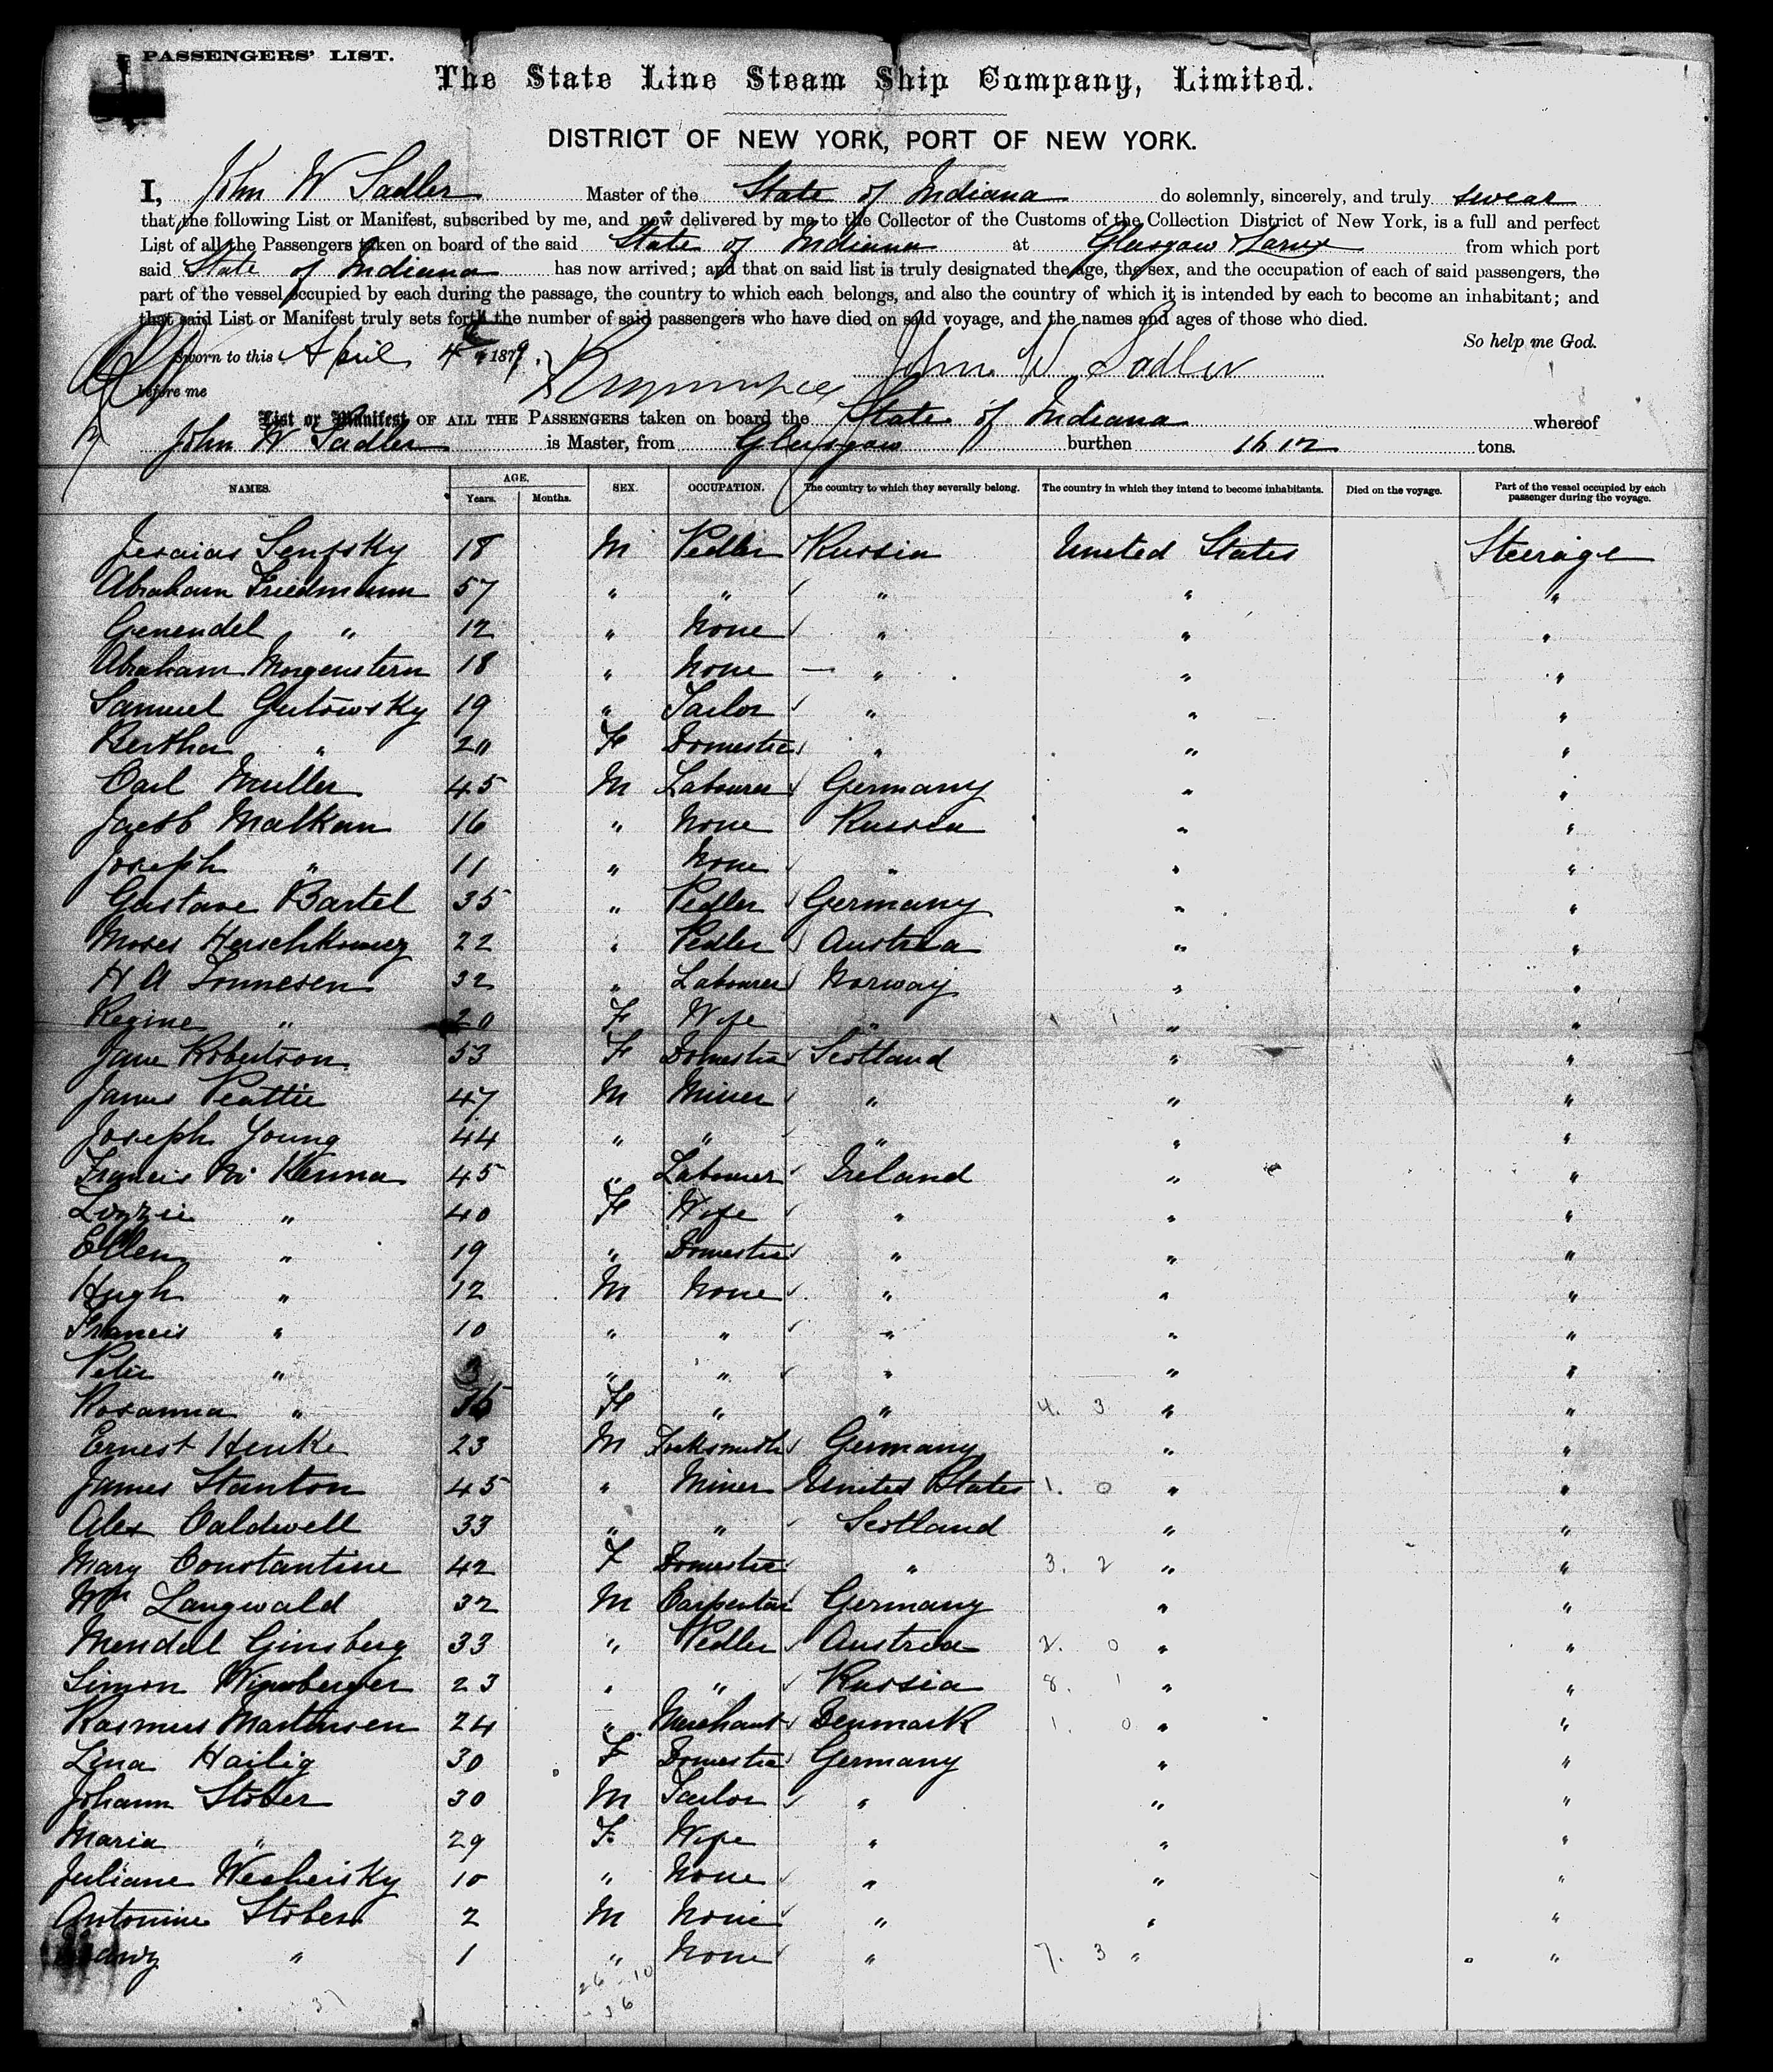 PASSENGERS' LIST.
The State Line Steam Ship Company, Limited.
DISTRICT OF NEW YORK, PORT OF NEW YORK.
I, John W Sadler Master of the State of Indiana do solemnly, sincerely, and truly swear
that the following List or Manifest, subscribed by me, and now delivered by me to the Collector of the Customs of the Collection District of New York, is a full and perfect
List of all the Passengers taken on board of the said State of Indiana at Glasgow & Larne from which port
said State of Indiana has now arrived; and that on said list is truly designated the age, the sex, and the occupation of each of said passengers, the
part of the vessel occupied by each during the passage, the country to which each belongs, and also the country of which it is intended by each to become an inhabitant; and
that said List or Manifest truly sets forth the number of said passengers who have died on said voyage, and the names and ages of those who died.
So help me God.
Sworn to this April 4th 1879. John W Sadler
before me
List or Manifest OF ALL THE PASSENGERS taken on board the State of Indiana whereof
John W Sadler is Master, from Glasgow burthen 1612 tons.
NAMES. AGE. Years. Months. SEX. OCCUPATION. The country to which they severally belong. The country in which they intend to become inhabitants. Died on the voyage. Part of the vessel occupied by each passenger during the voyage.
18 M Pedler Russia United States Steerage
Abraham Friedmann 57 " " " " "
Genendel " 12 " None " " "
Abraham Morgenstern 18 " None — " " "
Samuel Gutowsky 19 " Tailor " " "
Bertha " 20 F Domestic " " "
Carl Muller 45 M Labourer Germany " "
Jacob Malkan 16 " None Russia " "
Joseph " 11 " None " " "
Gustave Bartel 35 " Pedler Germany " "
Moses 22 " Pedler Austria " "
H A Tonnesen 32 " Labourer Norway " "
Regine " 20 F Wife " " "
Jane Robertson 53 F Domestic Scotland " "
James Peattie 47 M Miner " " "
Joseph Young 44 " " " " "
Francis Mc Kenna 45 " Labourer Ireland " "
Lizzie " 40 F Wife " " "
Ellen " 19 " Domestic " " "
Hugh " 12 M None " " "
Francis " 10 " " " " "
Peter " 3 " " " " "
Rosanna " F " " 4. 3 " "
Ernest Henke 23 M Locksmith Germany " "
James Stanton 45 " Miner United States 1. 0 " "
Alex Caldwell 33 " " Scotland " "
Mary Constantine 42 F Domestic " 3. 2 " "
Wm Langwald 32 M Carpenter Germany " "
Mendel Ginsberg 33 " Pedler Austria 2. 0 " "
Simon 23 " " Russia 8. 1 " "
Rasmus Martensen 24 " Merchant Denmark 1. 0 " "
Lina Hailig 30 F Domestic Germany " "
Johann Stober 30 M Tailor " " "
Maria " 29 F. Wife " " "
Juliane 10 " None " " "
Antonine Stober 2 M None " " "
" 1 " None " 7. 3 " "
37 26 - 10
36